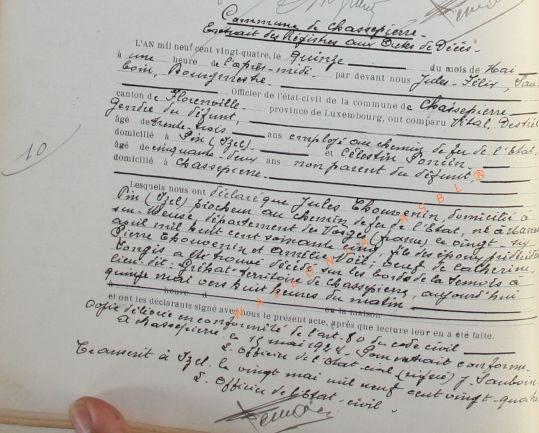 Commune de Chassepierre.
Extrait des Registres aux Actes de Décès.
L'AN mil neuf cent vingt-quatre, le quinze du mois de Mai
à une heure de l'après-midi par devant nous Jules-Félix, Sau-
Bourgmestre Officier de l'état-civil de la commune de Chassepierre
canton de Florenville province de Luxembourg, ont comparu Vital, Destrée
gendre du défunt,
âgé de trente-trois ans employé au chemin de fer de l'Etat,
domicilié à Pin (Izel) et Célestin
âgé de cinquante-deux ans non parent du défunt,
domicilié à Chassepierre.
10
Lesquels nous ont déclaré que Jules Thouvenin, domicilié à
Pin (Izel) piocheur au chemin de fer de l'Etat, né à
sur-Meuse département des Vosges (France) le vingt-six
avril mil huit cent soixante cinq fils des époux prédécédés
Pierre Thouvenin et Noël, veuf de Catherine
a été trouvé décédé sur les bords de la Semois à
lieu-dit: territoire de Chassepierre, aujourd'hui
quinze mai vers huit heures du matin
à heure d en la maison
et ont les déclarants signé avec nous le présent acte, après que lecture leur en a été faite.
Copie délivrée en conformité de l'art. 80 du code civil
à Chassepierre, le 15 mai 1924. Pour extrait conforme.
L'Officier de l'Etat-civil (signé) J. Sauboin
Transcrit à Izel, le vingt mai mil neuf cent vingt-quatre
L'Officier de l'Etat-civil.
NALONSART ASBL®